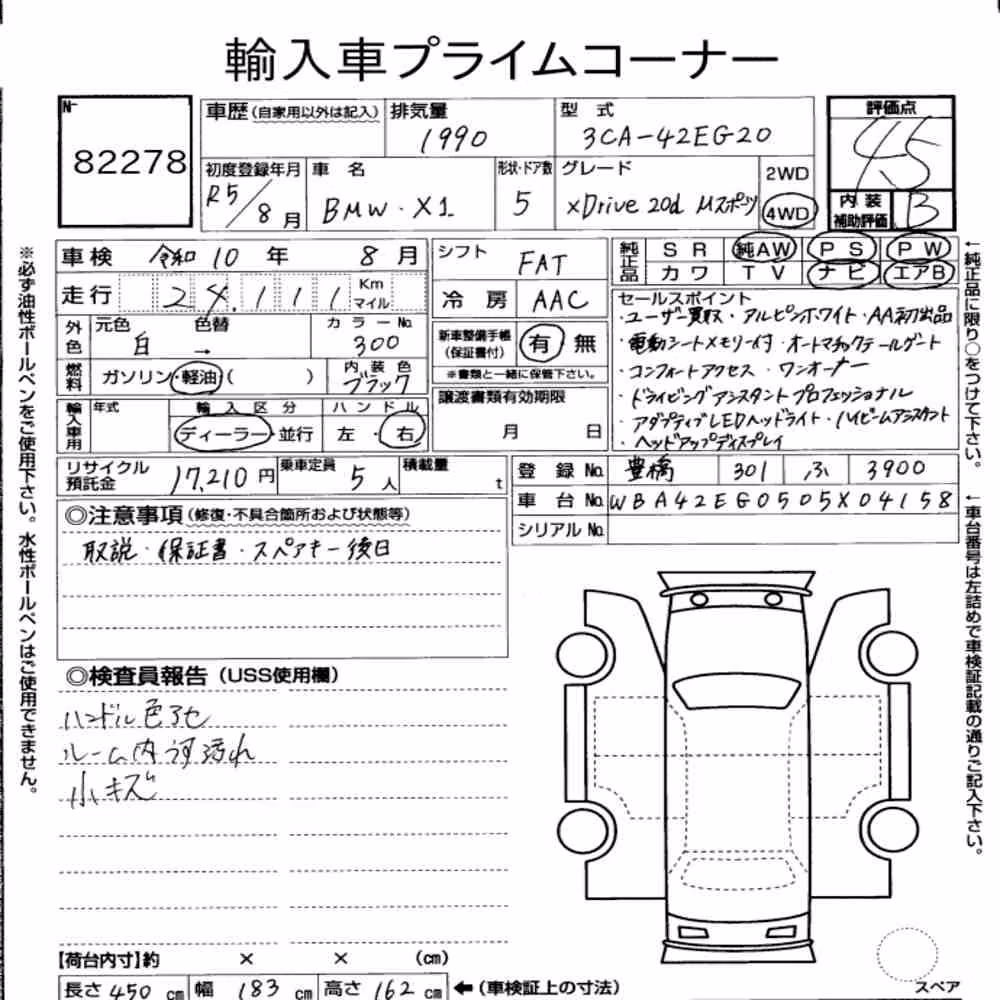 輸入車プライムコーナー
N-
82278
車歴(自家用以外は記入)
排気量
1990
型 式
3CA-42EG20
評価点
45
初度登録年月
R5/8月
車 名
BMW・X1
形状・ドア数
5
グレード
xDrive 20d Mスポーツ
2WD
4WD
内装
補助評価
B
車検 令和 10 年 8 月
走行 24,111 Km
マイル
シフト FAT
冷 房 AAC
純正品 SR 純AW PS PW
カワ TV ナビ エアB
外色 元色 色替 カラーNo.
白 → 300
燃料 ガソリン・軽油・( )
内装色
ブラック
新車整備手帳
(保証書付)
有 無
※書類と一緒に保管下さい。
セールスポイント
・ユーザー買取・アルピンホワイト・AA初出品
・電動シートメモリー付・オートマチックテールゲート
・コンフォートアクセス・ワンオーナー
・ドライビングアシスタントプロフェッショナル
・アダプティブLEDヘッドライト・ハイビームアシスタント
・ヘッドアップディスプレイ
輸入車用 年式 輸入区分 ハンドル
ディーラー・並行 左・右
譲渡書類有効期限
月 日
リサイクル
預託金
17,210円
乗車定員
5人
積載量
t
登録No. 豊橋 301 ふ 3900
車台No. WBA42EG0505X04158
シリアルNo.
◎注意事項(修復・不具合箇所および状態等)
取説・保証書・スペアキー後日
◎検査員報告(USS使用欄)
ハンドル色アセ
ルーム内うす汚れ
小キズ
【荷台内寸】約 × × (cm)
長さ 450 cm 幅 183 cm 高さ 162 cm ←(車検証上の寸法)
スペア
※必ず油性ボールペンをご使用下さい。水性ボールペンはご使用できません。
←純正品に限り○をつけて下さい。
←車台番号は左詰めで車検証記載の通りご記入下さい。